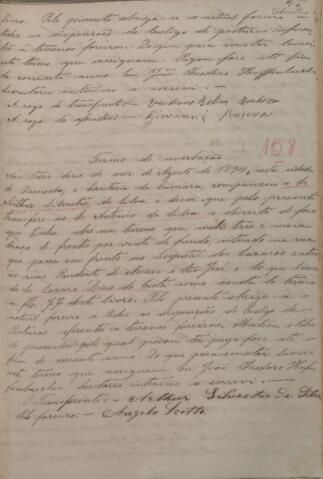 livro. Pelo presente obriga-se o actual foreiro á
todas as disposições do codigo de posturas referen-
te a terrenos foreiros. Do que para constar lavrei
este termo que assignam. Pagou fóro até fim
do corrente anno. Eu João Theodoro Huffenbaecher
secretario interino o escrevi.—
A rogo do transferente:— Barbosa
A rogo do aforado:— Giovanni
158
Termo de averbação
Aos tres dias do mez de Agosto de 1894, nesta cidade
de, e secretaria da Camara, compareceu o Sr.
Arthur Silvestre da Silva e disse: que pelo presente
transfere ao Sr. Antonio da Silva o direito de foro
que tinha sobre um terreno que mede tres e meia
braças de frente por vinte de fundo, situado na rua
que passa em frente ao hospital dos Lazaros entre
as ruas Prudente de Moraes e São José, e que houve
de Lazaro Pires da Costa como consta do termo
a fls. 87 deste livro. Pelo presente obriga-se o
actual foreiro a todas as disposições do Codigo de
Posturas referentes a terrenos foreiros.
pelo qual provou ter pago fóro até o
fim do corrente anno. Do que para constar lavrei
este termo que assignam. Eu, João Theodoro Huf-
fenbaecher, secretario interino o escrevi.—
O Transferente:— Arthur Silvestre da Silva
Pelo foreiro:— Angelo Scotto